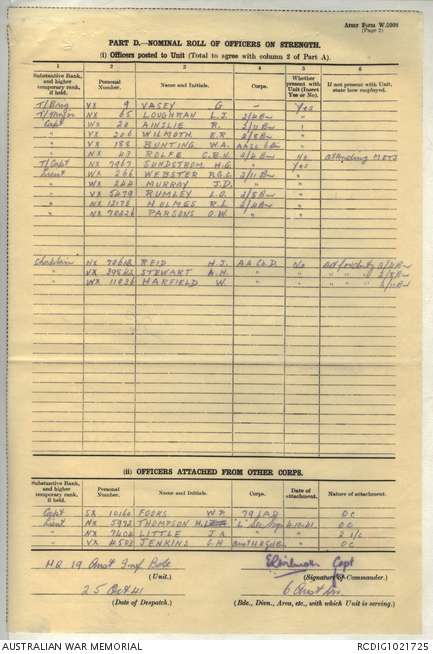 Army Form W.3008
(Page 2)
PART D.—NOMINAL ROLL OF OFFICERS ON STRENGTH.
(i) Officers posted to Unit (Total to agree with column 2 of Part A).
1 2 3 4 5 6
Substantive Rank, and higher temporary rank, if held. Personal Number. Name and Initials. Corps. Whether present with Unit (Insert Yes or No). If not present with Unit, state how employed.
T/Brig VX 9 VASEY G — Yes
T/Major NX 65 LOUGHRAN L.J. 2/4 Bn "
Capt WX 20 AINSLIE R. 2/11 Bn "
" VX 206 WILMOTH E.R. 2/8 Bn "
" VX 188 BUNTING W.A. AASC "
" NX 43 ROLFE C.B.N. 2/4 Bn No attending METS
T/Capt NX 7967 SUNDSTROM H.G. " Yes
Lieut WX 266 WEBSTER R.G.C. 2/11 Bn "
" WX 244 MURRAY J.D. " "
" VX 5479 RUMLEY L.O. 2/8 Bn "
" NX 12178 HOLMES R.L. 2/4 Bn "
" NX 70226 PARSONS O.W. " "
Chaplain NX 70612 REID H.J. AA Ch D. No Att for duty 2/4 Bn
" VX 39842 STEWART A.H. " " " " " 2/8 Bn
" WX 11036 HARFIELD W. " " " " " 2/11 Bn
(ii) OFFICERS ATTACHED FROM OTHER CORPS.
Substantive Rank, and higher temporary rank, if held. Personal Number. Name and Initials. Corps. Date of attachment. Nature of attachment.
Capt SX 10160 FOOKS W.P. 79 LAD OC
Lieut NX 5972 THOMPSON H. "L" Sec Sigs OC
" NX 7404 LITTLE J. " " 2 i/c
" VX 4502 JENKINS G.H. OC
HQ 19 Aust Inf Bde
(Unit.)
Capt
(Signature of Commander.)
25 Oct 41
(Date of Despatch.)
6 Aust Div
(Bde., Divn., Area, etc., with which Unit is serving.)
AUSTRALIAN WAR MEMORIAL
RCDIG1021725